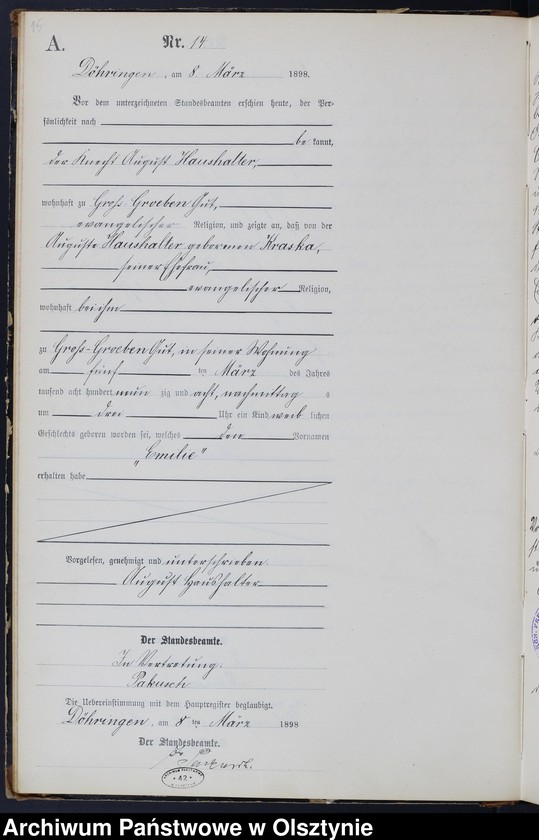 15
A. Nr. 14
Döhringen, am 8. März 1898.
Vor dem unterzeichneten Standesbeamten erschien heute, der Per-
sönlichkeit nach
be kannt,
der Knecht August Haushalter,
wohnhaft zu Groß Groeben Gut,
evangelischer Religion, und zeigte an, daß von der
Auguste Haushalter geborenen Kraska,
seiner Ehefrau,
evangelischer Religion,
wohnhaft bei ihm
zu Groß-Groeben Gut, in seiner Wohnung
am fünf ten März des Jahres
tausend acht hundert neun zig und acht, nachmittag s
um drei Uhr ein Kind weib lichen
Geschlechts geboren worden sei, welches den Vornamen
„Emilie"
erhalten habe
Vorgelesen, genehmigt und unterschrieben.
August Haushalter
Der Standesbeamte.
In Vertretung.
Pakusch
Die Uebereinstimmung mit dem Hauptregister beglaubigt.
Döhringen, am 8 ten März 1898
Der Standesbeamte.
42
Archiwum Państwowe w Olsztynie